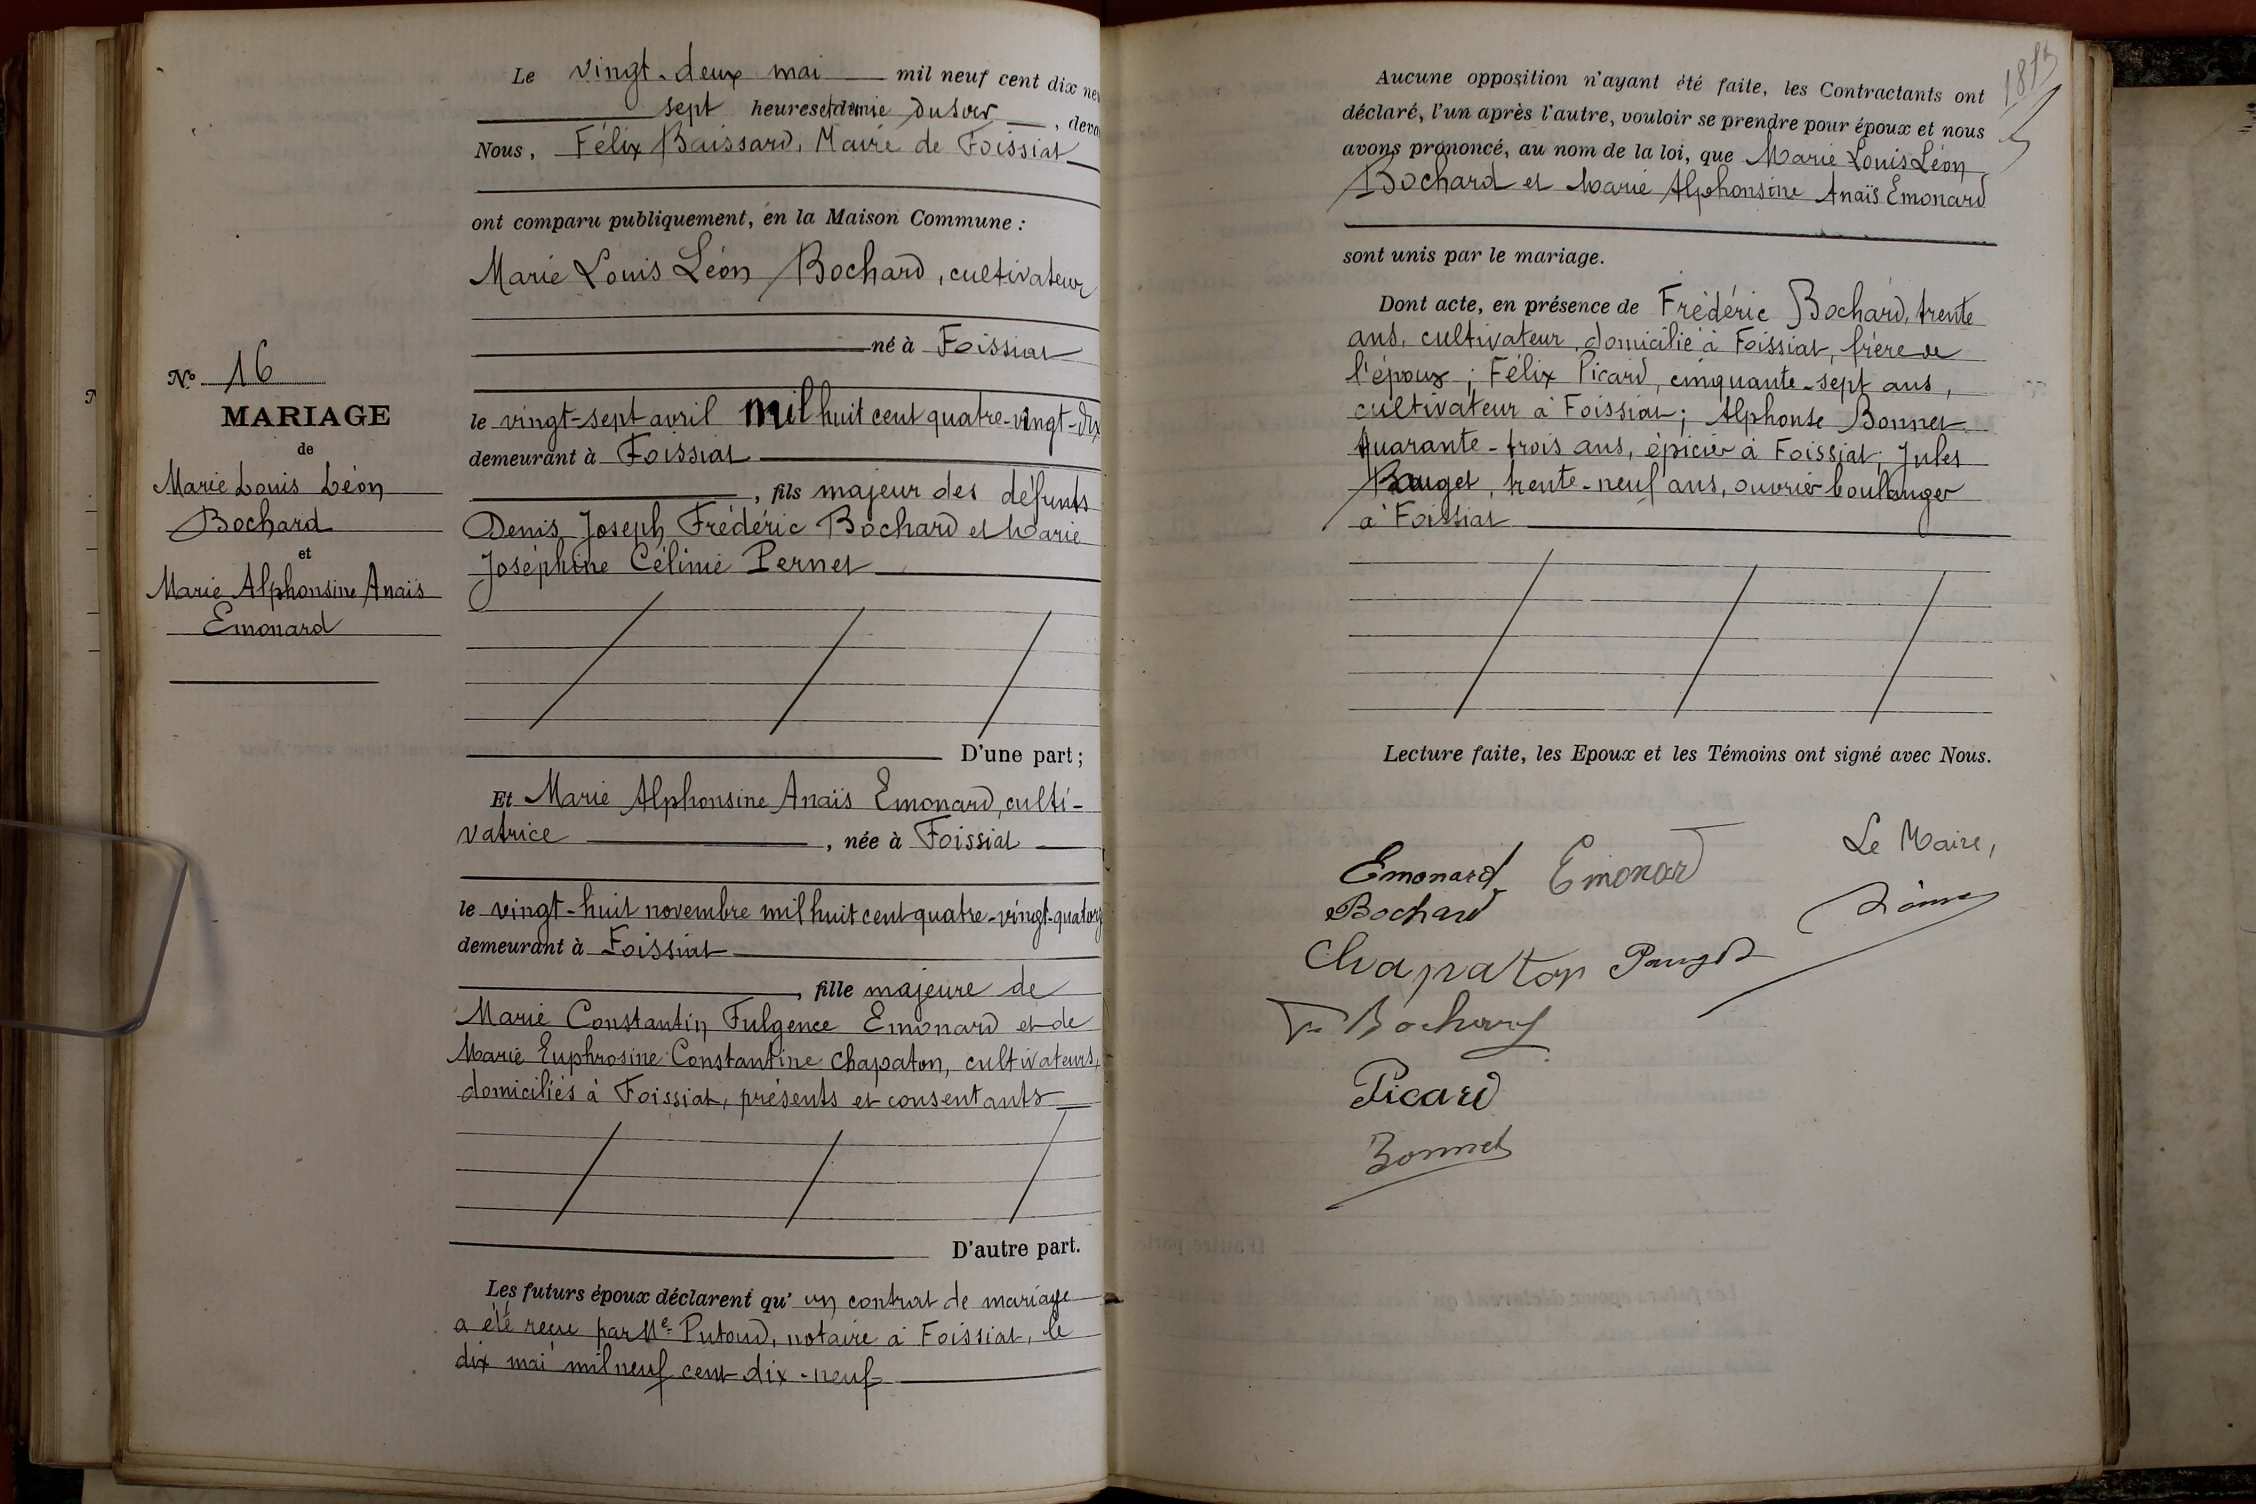 Le vingt-deux mai mil neuf cent dix neu
sept heures et demie du soir, deva
Nous, Félix Baissard, Maire de Foissiat
ont comparu publiquement, en la Maison Commune :
Marie Louis Léon Bochard, cultivateur
né à Foissiat
le vingt-sept avril mil huit cent quatre-vingt-dix
demeurant à Foissiat
, fils majeur des défunts
Denis Joseph Frédéric Bochard et Marie
Joséphine Célinie Pernet
D'une part ;
Et Marie Alphonsine Anaïs Emonard, culti-
vatrice, née à Foissiat
le vingt-huit novembre mil huit cent quatre-vingt-quatorz
demeurant à Foissiat
, fille majeure de
Marie Constantin Fulgence Emonard et de
Marie Euphrosine Constantine Chapaton, cultivateurs,
domiciliés à Foissiat, présents et consentants
D'autre part.
Les futurs époux déclarent qu' un contrat de mariage
a été reçu par Me Putoud, notaire à Foissiat, le
dix mai mil neuf cent dix-neuf
No 16
MARIAGE
de
Marie Louis Léon
Bochard
et
Marie Alphonsine Anaïs
Emonard
Aucune opposition n'ayant été faite, les Contractants ont
déclaré, l'un après l'autre, vouloir se prendre pour époux et nous
avons prononcé, au nom de la loi, que Marie Louis Léon
Bochard et Marie Alphonsine Anaïs Emonard
sont unis par le mariage.
Dont acte, en présence de Frédéric Bochard, trente
ans, cultivateur, domicilié à Foissiat, frère de
l'époux ; Félix Picard, cinquante-sept ans,
cultivateur à Foissiat ; Alphonse Bonnet
quarante-trois ans, épicier à Foissiat ; Jules
Pauget, trente-neuf ans, ouvrier boulanger
à Foissiat
Lecture faite, les Epoux et les Témoins ont signé avec Nous.
Emonard Emonard Le Maire,
Bochard
Chapaton Pauget
Bochard
Picard
Bonnet